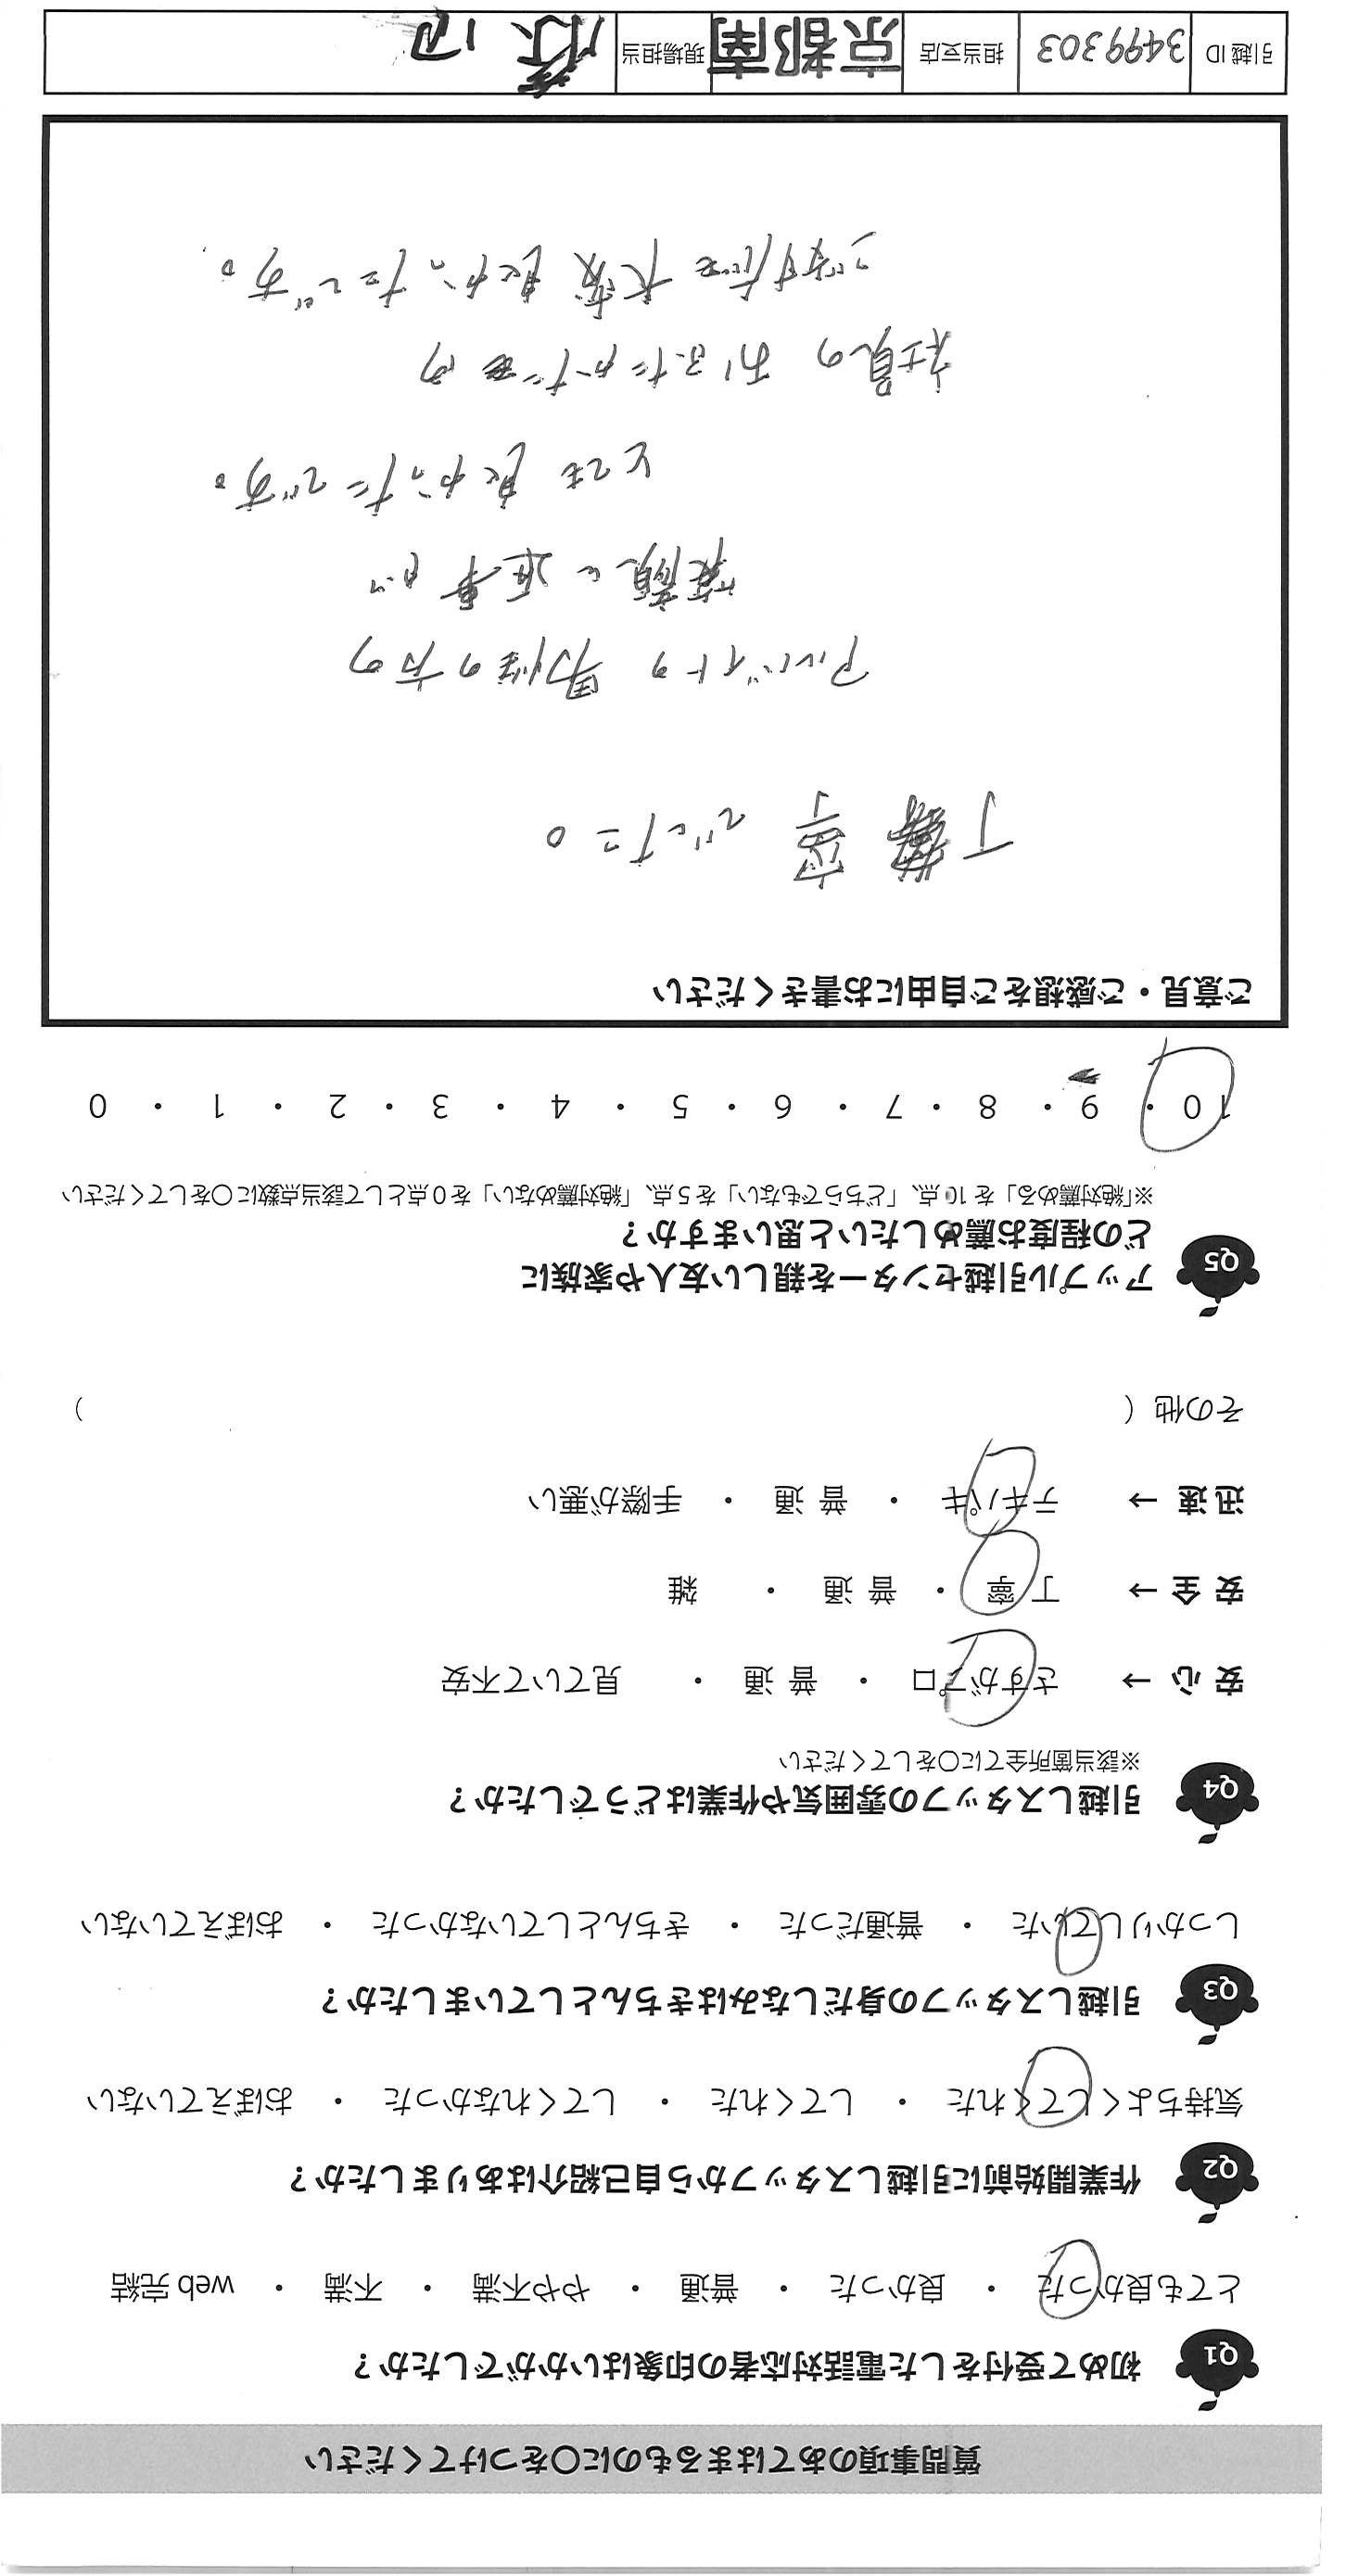 質問事項のあてはまるものに〇をつけてください
Q1 初めて受付をした電話対応者の印象はいかがでしたか？
とても良かった ・ 良かった ・ 普通 ・ やや不満 ・ 不満 ・ web 完結
Q2 作業開始前に引越しスタッフから自己紹介はありましたか？
気持ちよくしてくれた ・ してくれた ・ してくれなかった ・ おぼえていない
Q3 引越しスタッフの身だしなみはきちんとしていましたか？
しっかりしていた ・ 普通だった ・ きちんとしていなかった ・ おぼえていない
Q4 引越しスタッフの雰囲気や作業はどうでしたか？
※該当箇所全てに〇をしてください
安 心 → さすがプロ ・ 普 通 ・ 見ていて不安
安 全 → 丁 寧 ・ 普 通 ・ 雑
迅 速 → テキパキ ・ 普 通 ・ 手際が悪い
その他（ ）
Q5 アップル引越センターを親しい友人や家族に
どの程度お薦めしたいと思いますか？
※「絶対薦める」を 10 点、「どちらでもない」を 5 点、「絶対薦めない」を 0 点として該当点数に〇をしてください
10 ・ 9 ・ 8 ・ 7 ・ 6 ・ 5 ・ 4 ・ 3 ・ 2 ・ 1 ・ 0
ご意見・ご感想をご自由にお書きください
丁寧でした。
アルバイトの男性の方の
笑顔と返事が
とても良かったです。
社員のおふたかたもの
大変良かったです。
引越 ID 3499303 担当支店 京都南 現場担当